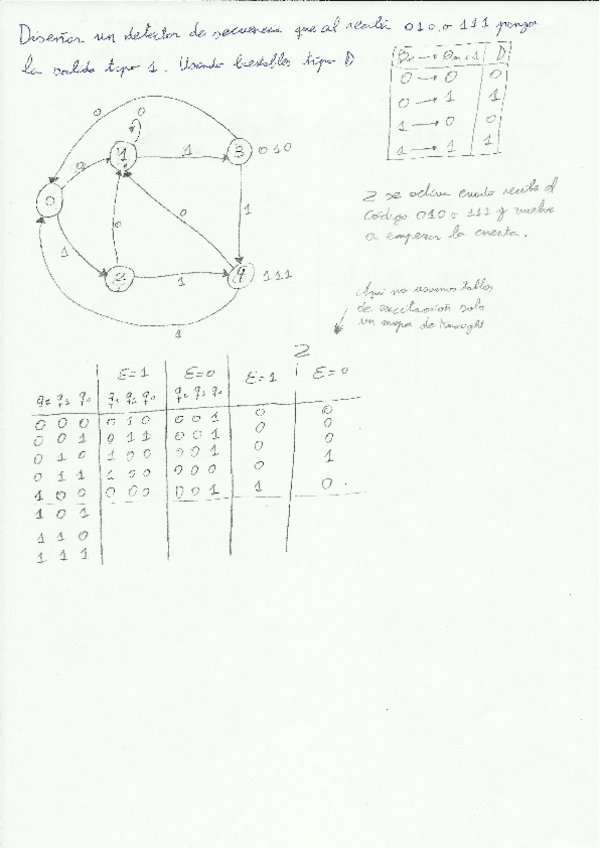 Diseñar un detector de secuencia que al recibir 010 o 111 ponga
la salida tipo 1. Usando biestables tipo D
0 → 0 0
0 → 1 1
1 → 0 0
1 → 1 1
Z se activa cuando recibe el
código 010 o 111 y vuelve
a empezar la cuenta.
0
0
0
1
0
1
3
010
0
0
0
1
1
2
1
4
111
1
Aquí no usamos tablas
de excitación solo
un mapa de Karnaugh
Z
E=1 E=0 E=1 E=0
q2 q1 q0 q2 q1 q0 q2 q1 q0
0 0 0 0 1 0 0 0 1 0 0
0 0 1 0 1 1 0 0 1 0 0
0 1 0 1 0 0 0 0 1 0 0
0 1 1 1 0 0 0 0 0 0 1
1 0 0 0 0 0 0 0 1 1 0
1 0 1
1 1 0
1 1 1